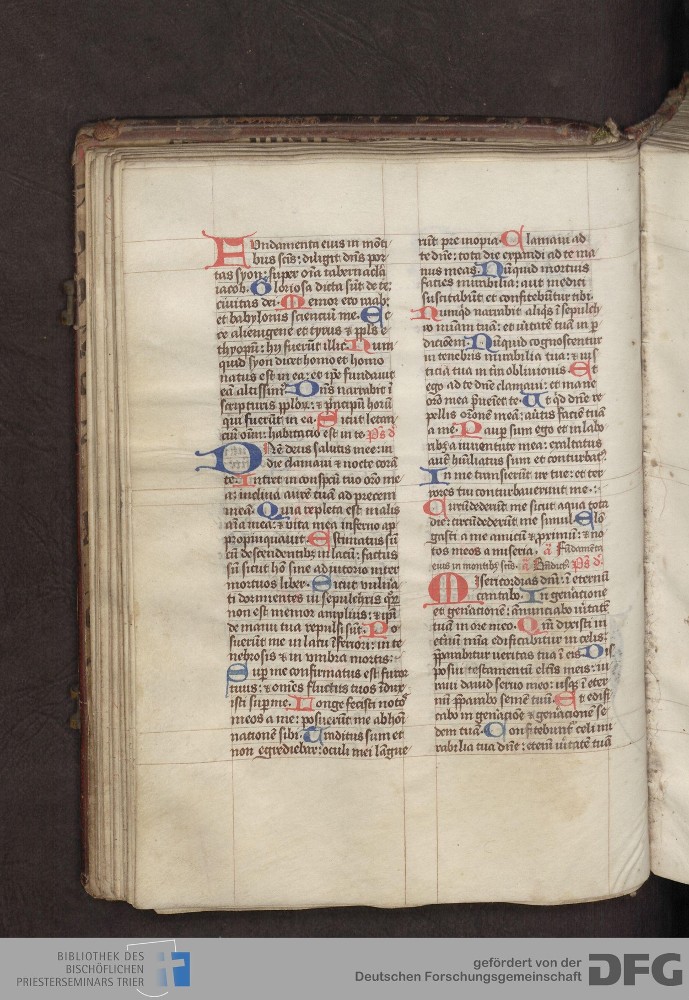 Fundamenta eius in mo͂ti
bus sc͂is: diligit dn͂s por
tas syon: super o͂ia tabernac͂la
iacob. Gloriosa dicta su͂t de te:
ciuitas dei. Memor ero raab:
et babylonis scienciu͂ me. Ec
ce alienigene et tyrus ⁊ ppl͂s e
thyopu͂: hij fueru͂t illic. Num
quid syon dicet homo et homo
natus est in ea: et ip͂e fundauit
ea͂ altissim⁹. Dn͂s narrabit i͂
scripturis pploꝝ: ⁊ p͂ncipu͂ horu͂
qui fueru͂t in ea. Sicut letan
ciu͂ o͂iu͂: habitatio est in te. Ps͂ d͂
Dn͂e deus salutis mee: in
die clamaui ⁊ nocte cora͂
te. Intret in conspc͂u tuo or͂o me
a: inclina aure͂ tua͂ ad precem
mea͂. Quia repleta est malis
a͂ia mea: ⁊ vita mea inferno ap
propinquauit. Estimatus su͂
cu͂ descendentibꝫ in lacu͂: factus
su͂ sicut ho͂ sine adiutorio inter
mortuos liber. Sicut vuln͂a
ti dormientes in sepulchris q͂ꝝ
non est memor amplius: ⁊ ip͂i
de manu tua repulsi su͂t. Po
sueru͂t me in lacu i͂feriori: in te
nebrosis ⁊ in vmbra mortis.
Sup me confirmatus est furor
tuus: ⁊ om͂es fluctus tuos i͂dux
isti sup me. Longe fecisti noto͂
meos a me: posueru͂t me abho͂i
nacione͂ sibi. Traditus sum et
non egrediebar: oculi mei la͂gue
ru͂t pre inopia. Clamaui ad
te dn͂e: tota die expandi ad te ma
nus meas. Nu͂quid mortuis
facies mirabilia: aut medici
suscitabu͂t et confitebu͂tur tibi.
Numq͂d narrabit aliq͂s i͂ sepulch͂
ro mi͂am tua͂: et u͂itate͂ tua͂ in p͂
dicio͂em. Nu͂quid cognoscentur
in tenebris mirabilia tua: ⁊ ius
ticia tua in t͂ra obliuionis. Et
ego ad te dn͂e clamaui: et mane
or͂o mea p͂ueiet te. Ut q͂d dn͂e re
pellis or͂one͂ mea͂: au͂tis facie͂ tua͂
a me. Paup sum ego et in labo
ribꝫ a iuuentute mea: exaltatus
aute͂ hu͂iliatus sum et conturbat⁹.
In me transieru͂t ire tue: et ter
rores tui conturbauerunt me.
Circu͂dederu͂t me sicut aqua tota
die: circu͂dederu͂t me simul. Elo͂
gasti a me amicu͂ ⁊ p͂ximu͂: ⁊ no
tos meos a miseria. a͂ Fu͂dame͂ta
eius in montibꝫ sc͂is. a͂ B͂ndict⁹. Ps͂ d͂.
Misericordias dn͂i: i͂ eternu͂
cantabo. In genacione
et genacione͂: annunciabo u͂itate͂
tua͂ in ore meo. Qm͂ dixisti in
etnu͂m mi͂a edificabitur in celis:
p͂parabitur veritas tua i͂ eis. Dis
posui testamentu͂ elc͂is meis: iu
raui dauid seruo meo: usq͂ i͂ eter
nu͂ p͂parabo seme͂ tuu͂. Et edifi
cabo in genacio͂e ⁊ genacione͂ se
dem tua͂. Confitebunt͂ celi mi
rabilia tua dn͂e: etem͂ u͂itate͂ tua͂
BIBLIOTHEK DES
BISCHÖFLICHEN
PRIESTERSEMINARS TRIER
gefördert von der
Deutschen Forschungsgemeinschaft
DFG